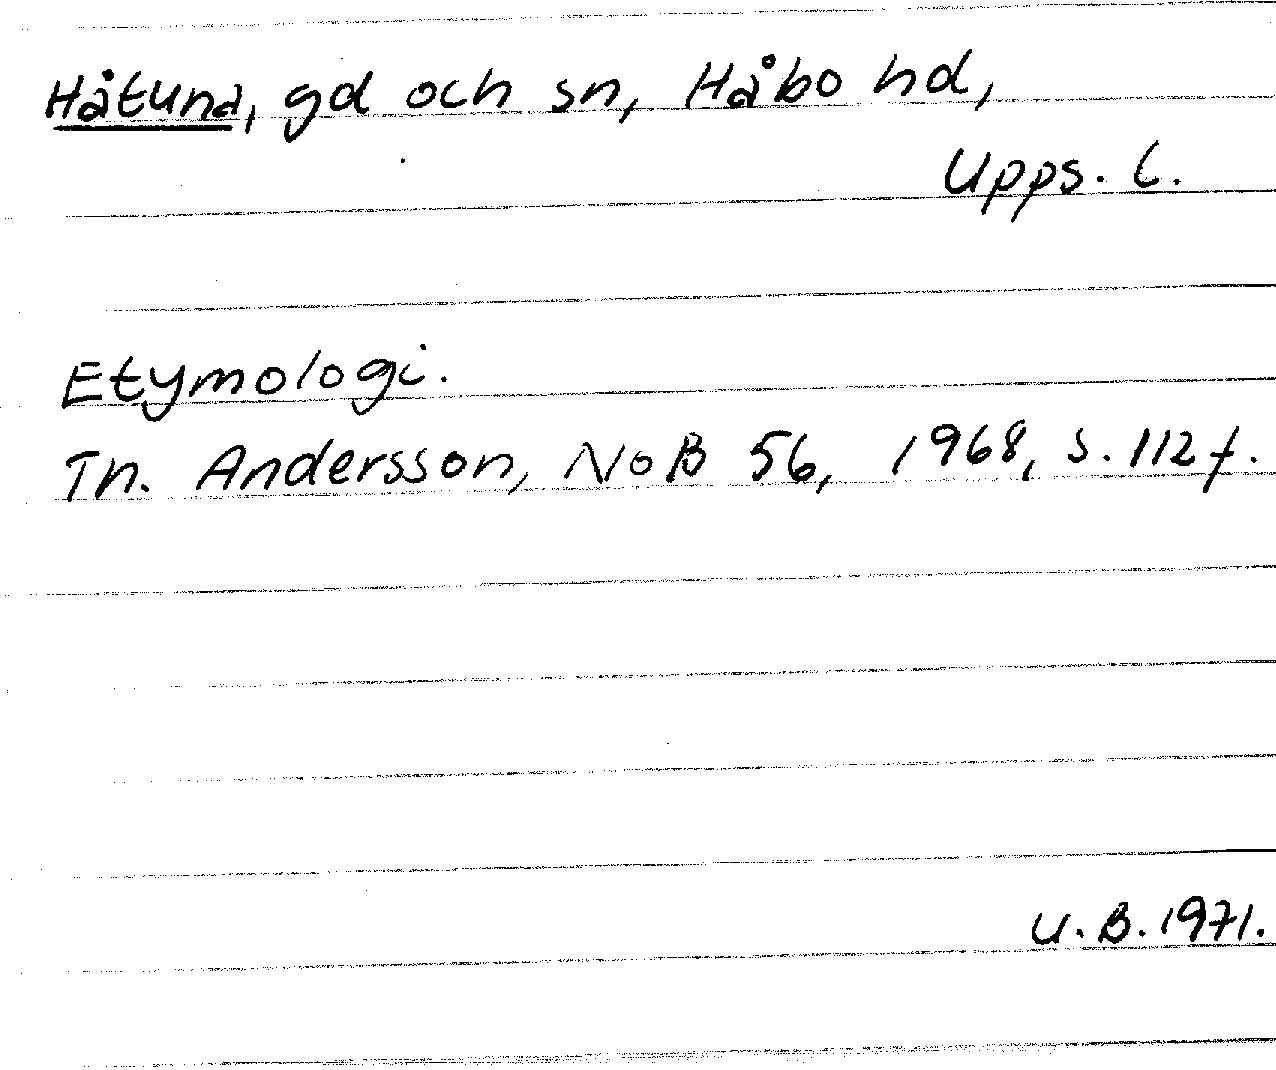 Håtuna, gd och sn, Håbo hd,
Upps. l.
Etymologi.
Th. Andersson, NoB 56, 1968, s. 112 f.
U.B. 1971.